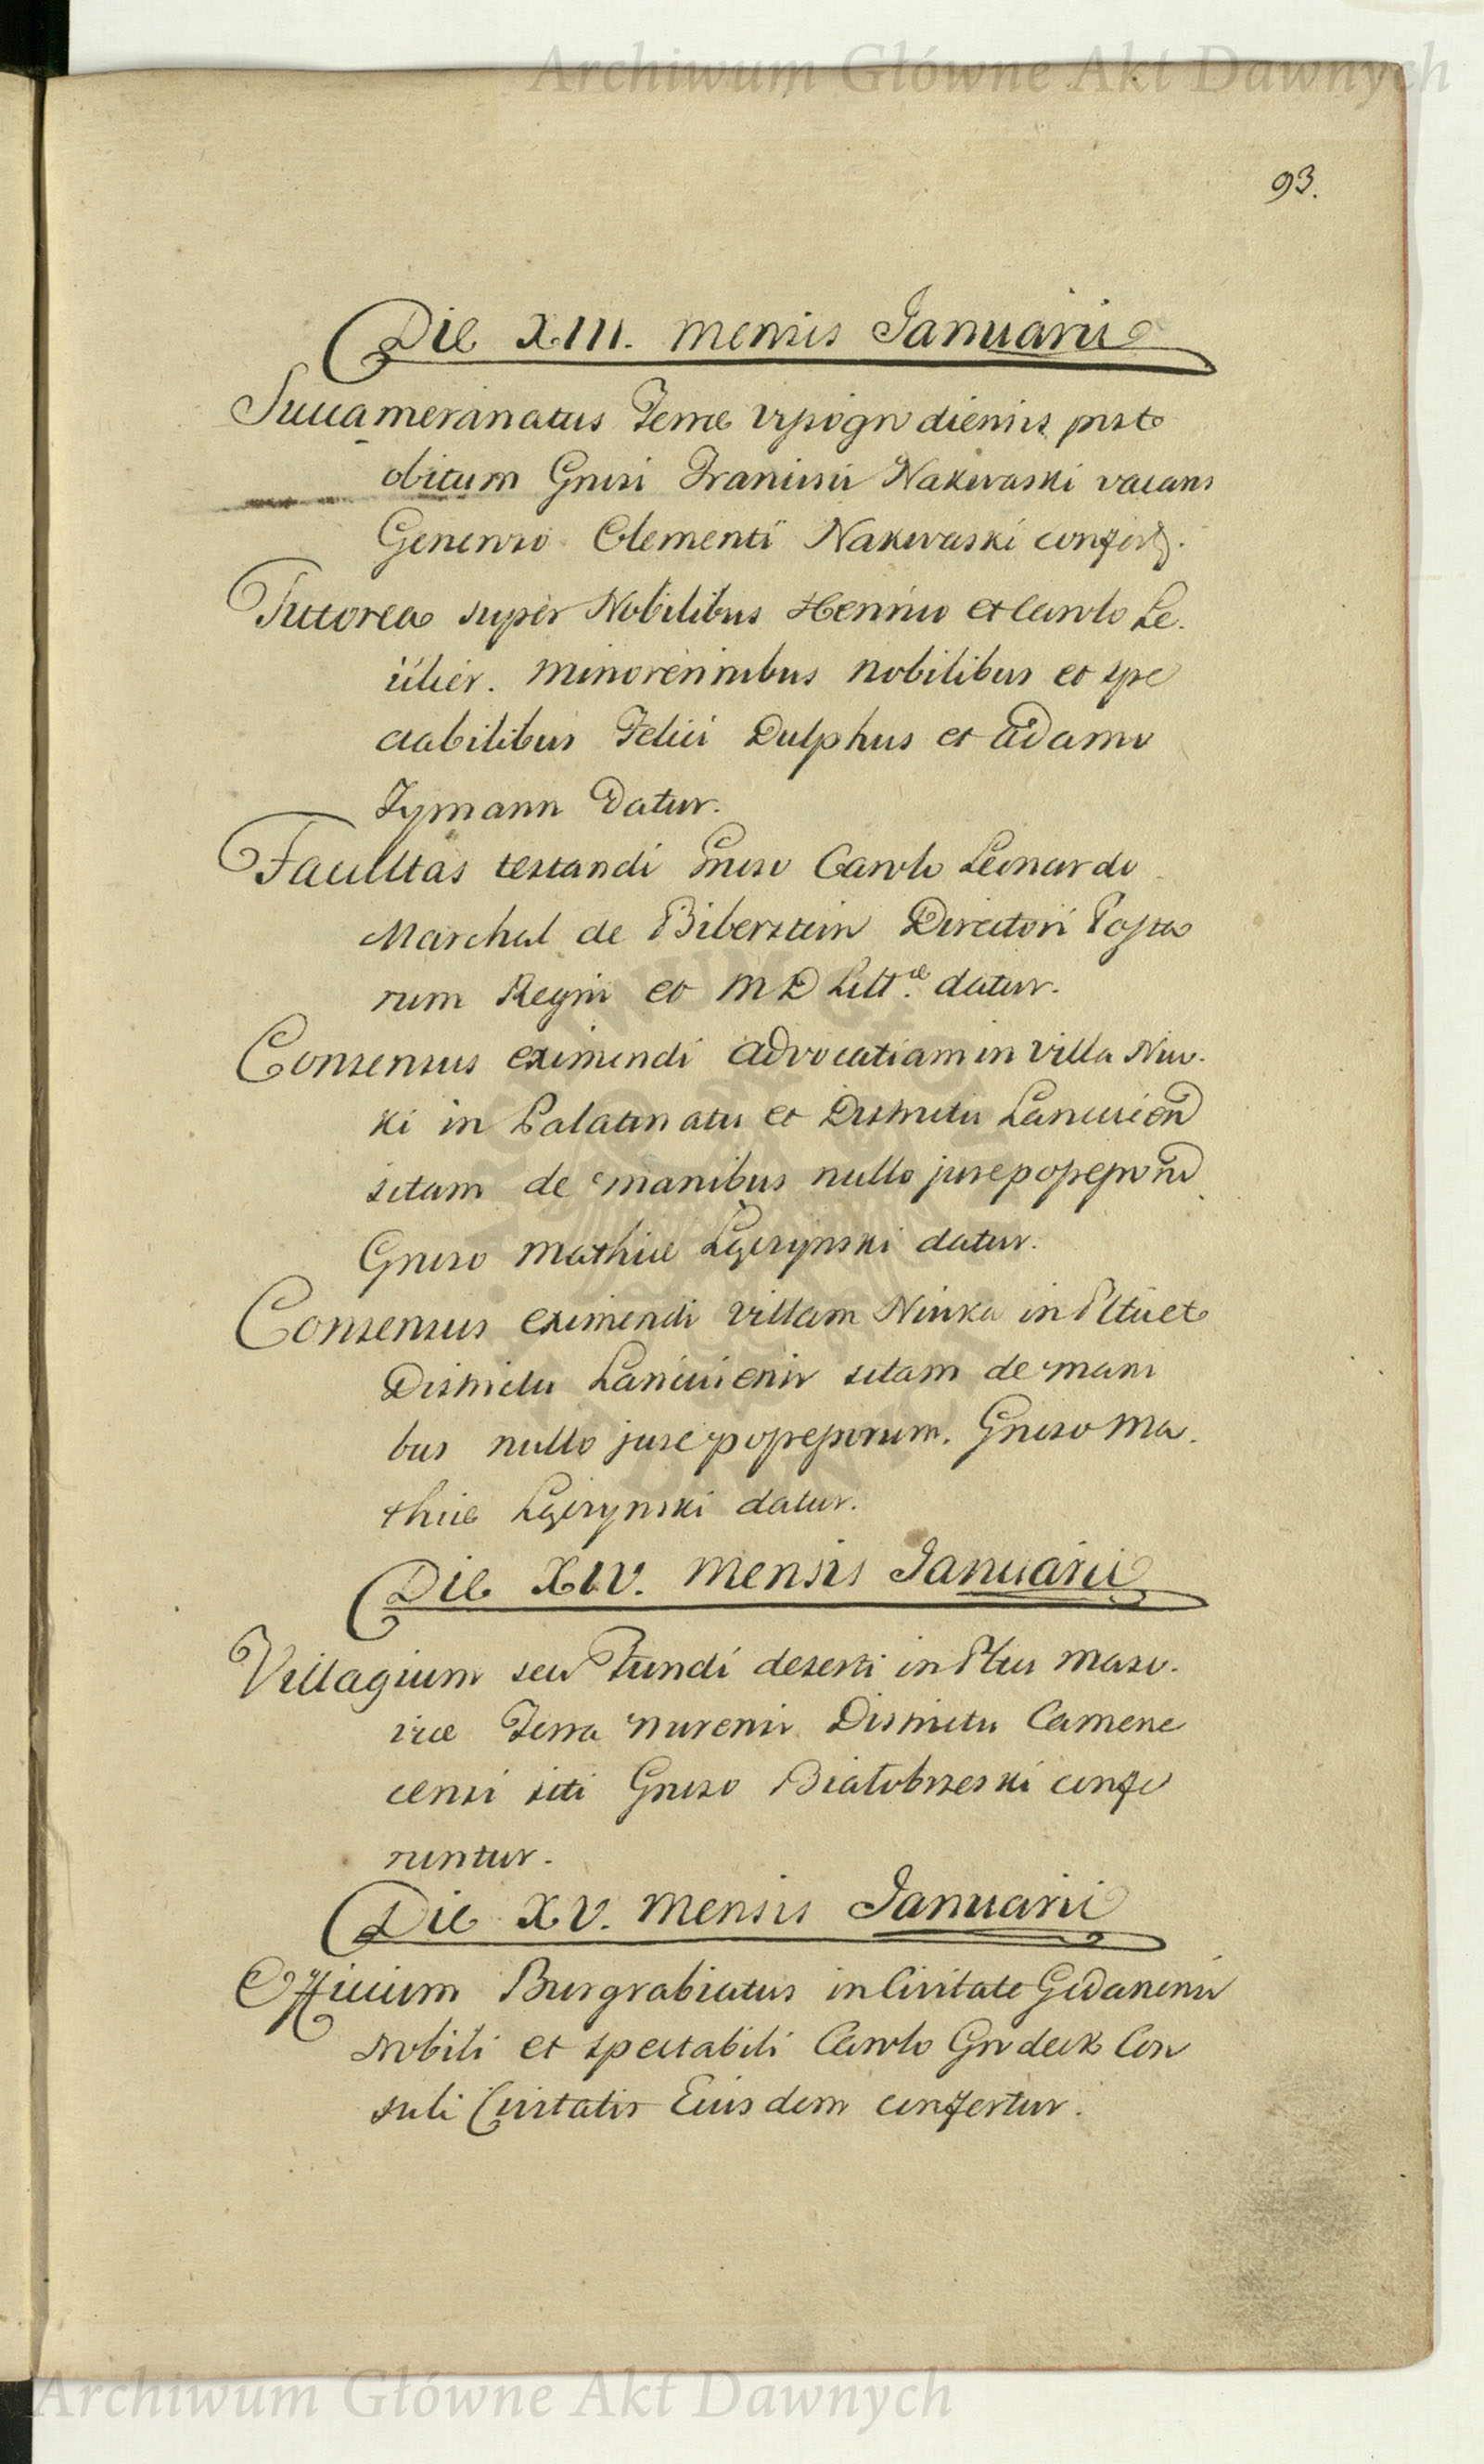 Archiwum Główne Akt Dawnych
93.
Die XIII. mensis Januarii
Succameranatus Terrae Vyssogrodiensis post
obitum Gnsi Francisci Nakwaski vacans
Generoso Clementi Nakwaski confert.
Tutorea super Nobilibus Henrico et Carolo Le-
ülier. minorennibus nobilibus et spe
ctabilibus Felici Dulphus et Adamo
Zymann datur.
Facultas testandi Gnso Carolo Leonardo
Marchal de Biberstein Directori Posta
rum Regni et M D Litt.ae datur.
Consensus eximendi advocatiam in Villa Niw-
ki in Palatinatu et Districtu Lancicien
sitam de manibus nullo jure possessoru
Gnso Mathiae Zgierzynski datur.
Consensus eximendi Villam Niwka in Pltu et
Districtu Lanciciensi sitam de mani
bus nullo jure possessorum. Gnso Ma-
thiae Zgierzynski datur.
Die XIV. mensis Januarii
Villagium seu Fundi deserti in Pltu Maso-
viae Terra Nurensi Districtu Camene
censi siti Gnso Białobrzeski confe
runtur.
Die XV. mensis Januarii
Officium Burgrabiatus in Civitate Gedanensi
Nobili et spectabili Carolo Grodeck Con
suli Civitatis Eiusdem confertur.
Archiwum Główne Akt Dawnych